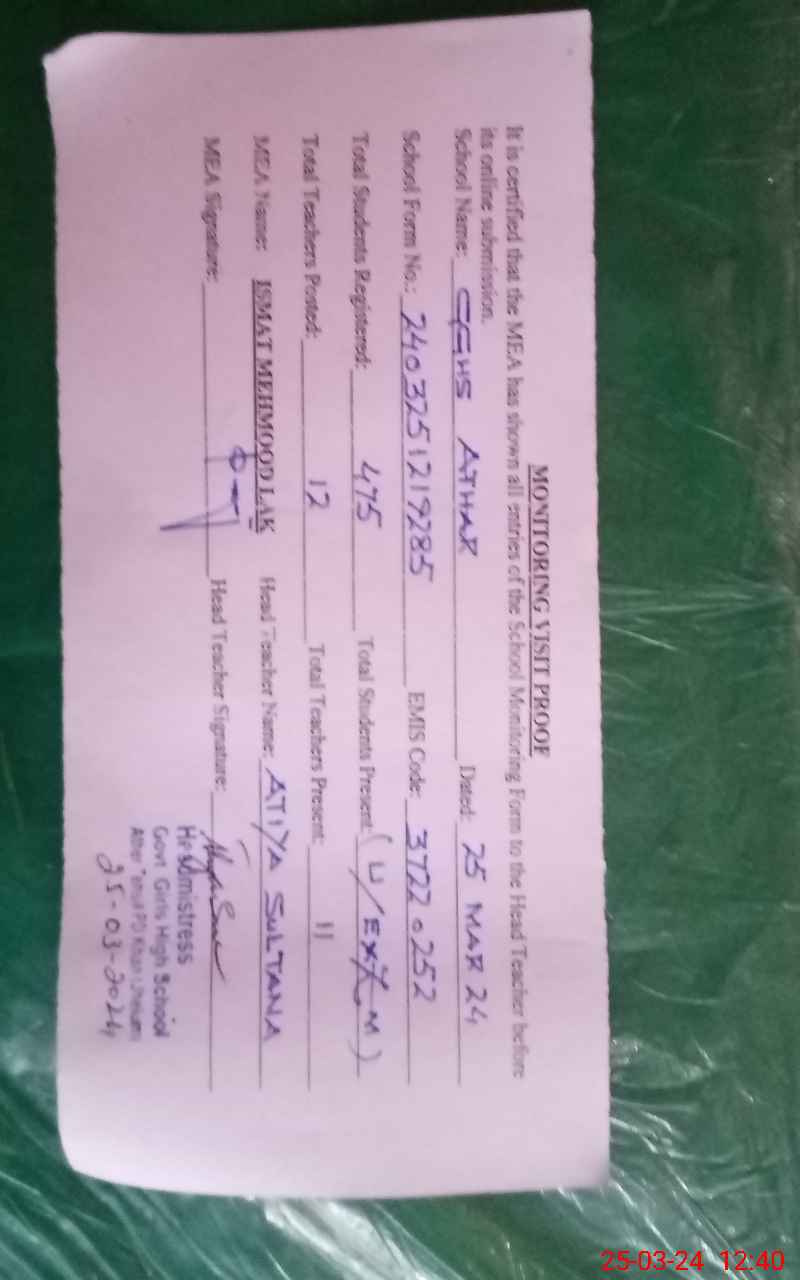 MONITORING VISIT PROOF
It is certified that the MEA has shown all entries of the School Monitoring Form to the Head Teacher before
its online submission.
School Name: GGHS ATHAR Dated: 25 MAR 24
School Form No.: 2403251219285 EMIS Code: 37220252
Total Students Registered: 475 Total Students Present: (U/EXAM)
Total Teachers Posted: 12 Total Teachers Present: 11
MEA Name: ISMAT MEHMOOD LAK Head Teacher Name: ATIYA SULTANA
MEA Signature: Head Teacher Signature:
Headmistress
Govt. Girls High School
Athar
25-03-2024
25-03-24 12:40